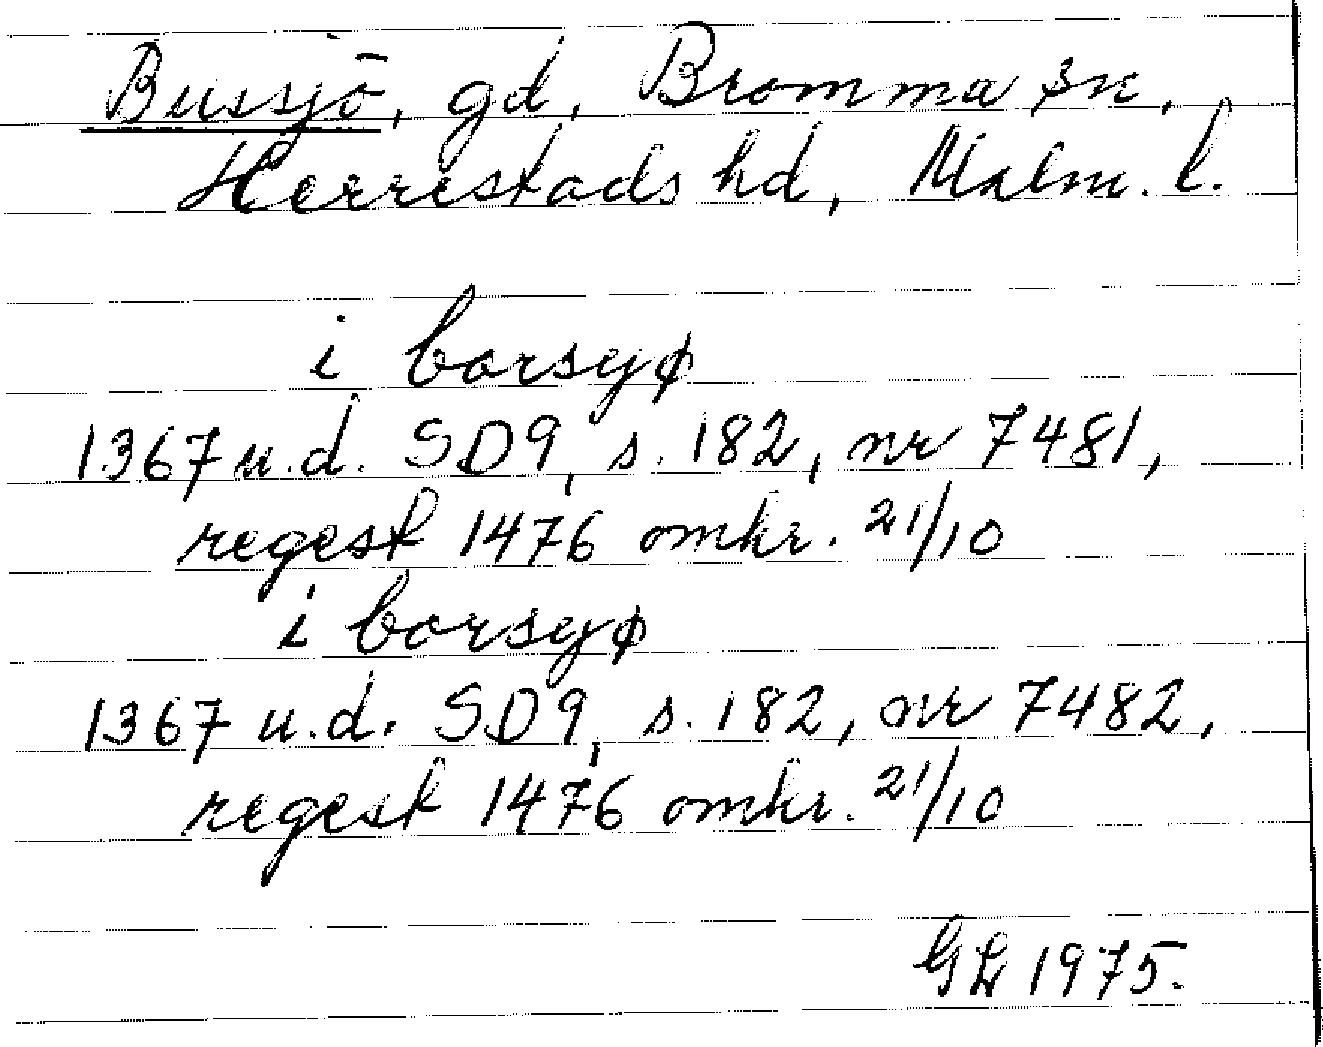 Bussjö, gd, Bromma sn,
Herrestads hd, Malm. l.
i borsyø
1367 u.d. SD9, s. 182, nr 7481,
regest 1476 omkr. 21/10
i borsyø
1367 u.d. SD9, s. 182, nr 7482,
regest 1476 omkr. 21/10
GL 1975.